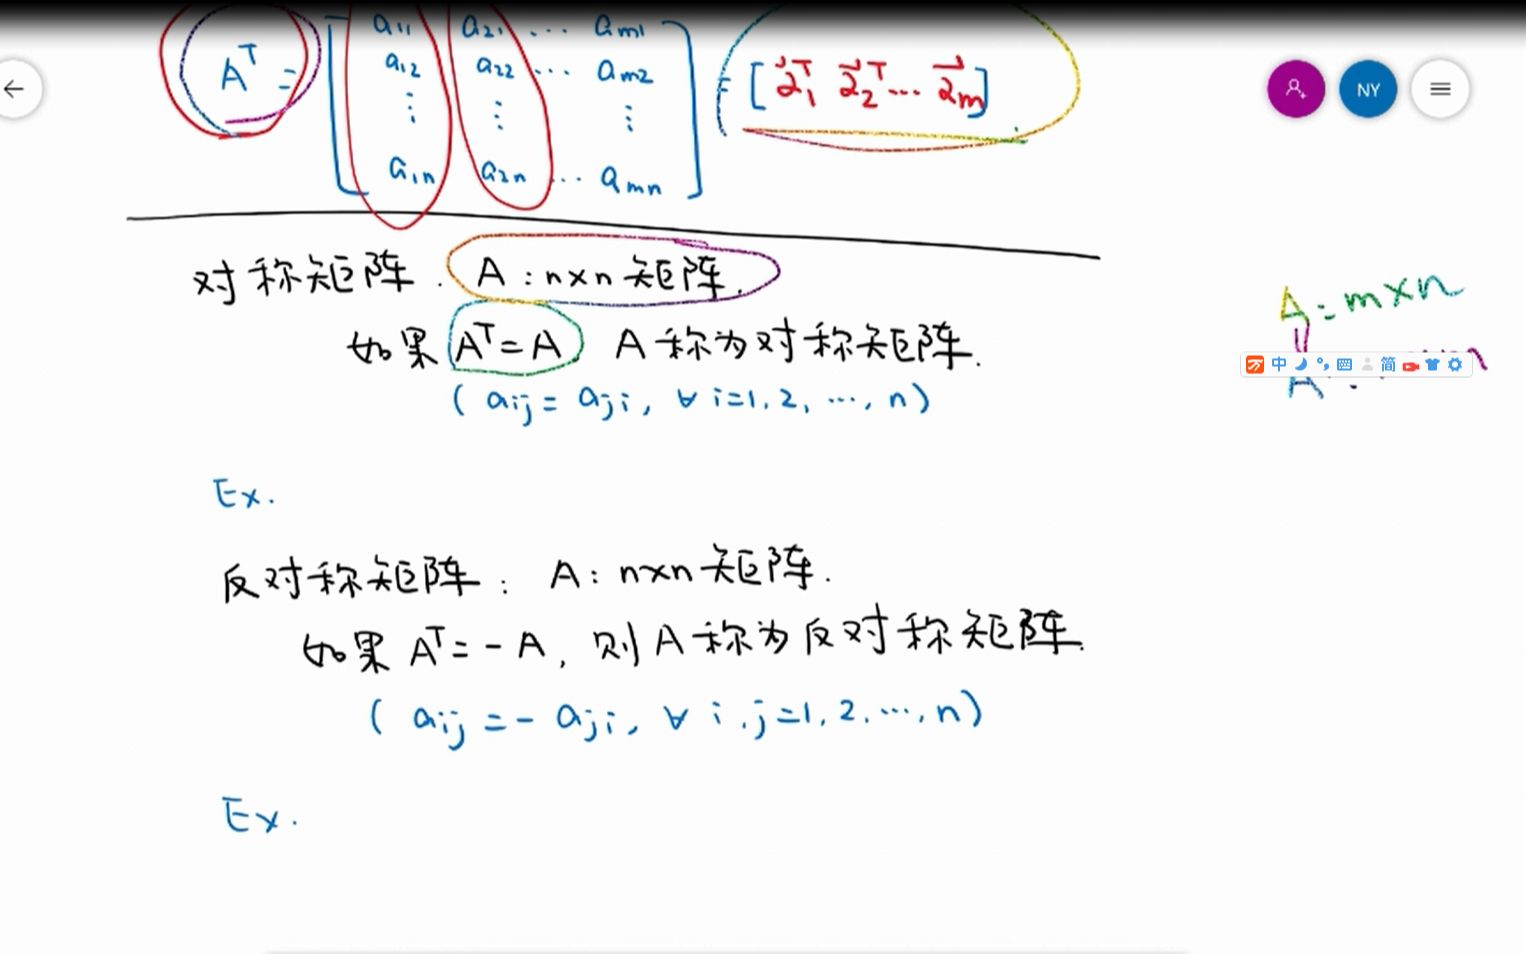 a11 a21 ... am1
Aᵀ = a12 a22 ... am2 = [ a⃗1ᵀ a⃗2ᵀ ... a⃗m ]
⋮ ⋮ ⋮
a1n a2n ... amn
NY
对称矩阵. A : n×n 矩阵.
A : m×n
如果 Aᵀ = A A 称为对称矩阵.
中 简
A :
( aij = aji, ∀ i=1, 2, ..., n )
Ex.
反对称矩阵 : A : n×n 矩阵.
如果 Aᵀ = - A, 则 A 称为反对称矩阵.
( aij = - aji, ∀ i, j=1, 2, ..., n )
Ex.